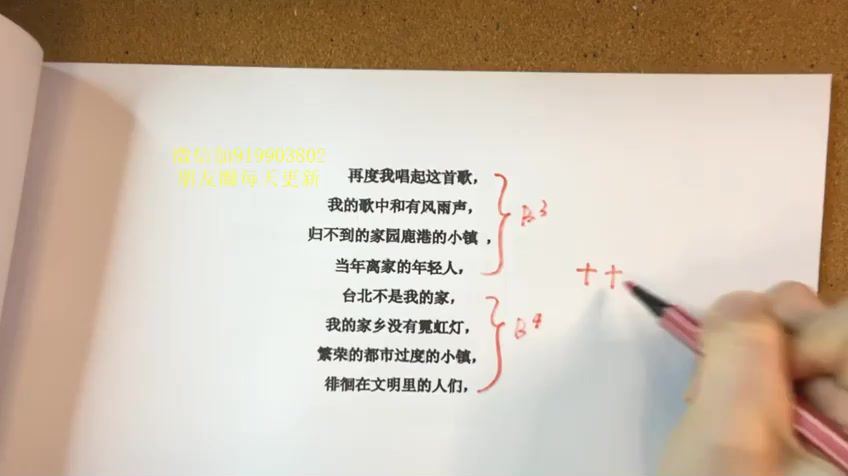 微信加919903802
朋友圈每天更新
再度我唱起这首歌，
我的歌中和有风雨声，
归不到的家园鹿港的小镇，
当年离家的年轻人，
B3
台北不是我的家，
我的家乡没有霓虹灯，
繁荣的都市过度的小镇，
徘徊在文明里的人们，
B4
++